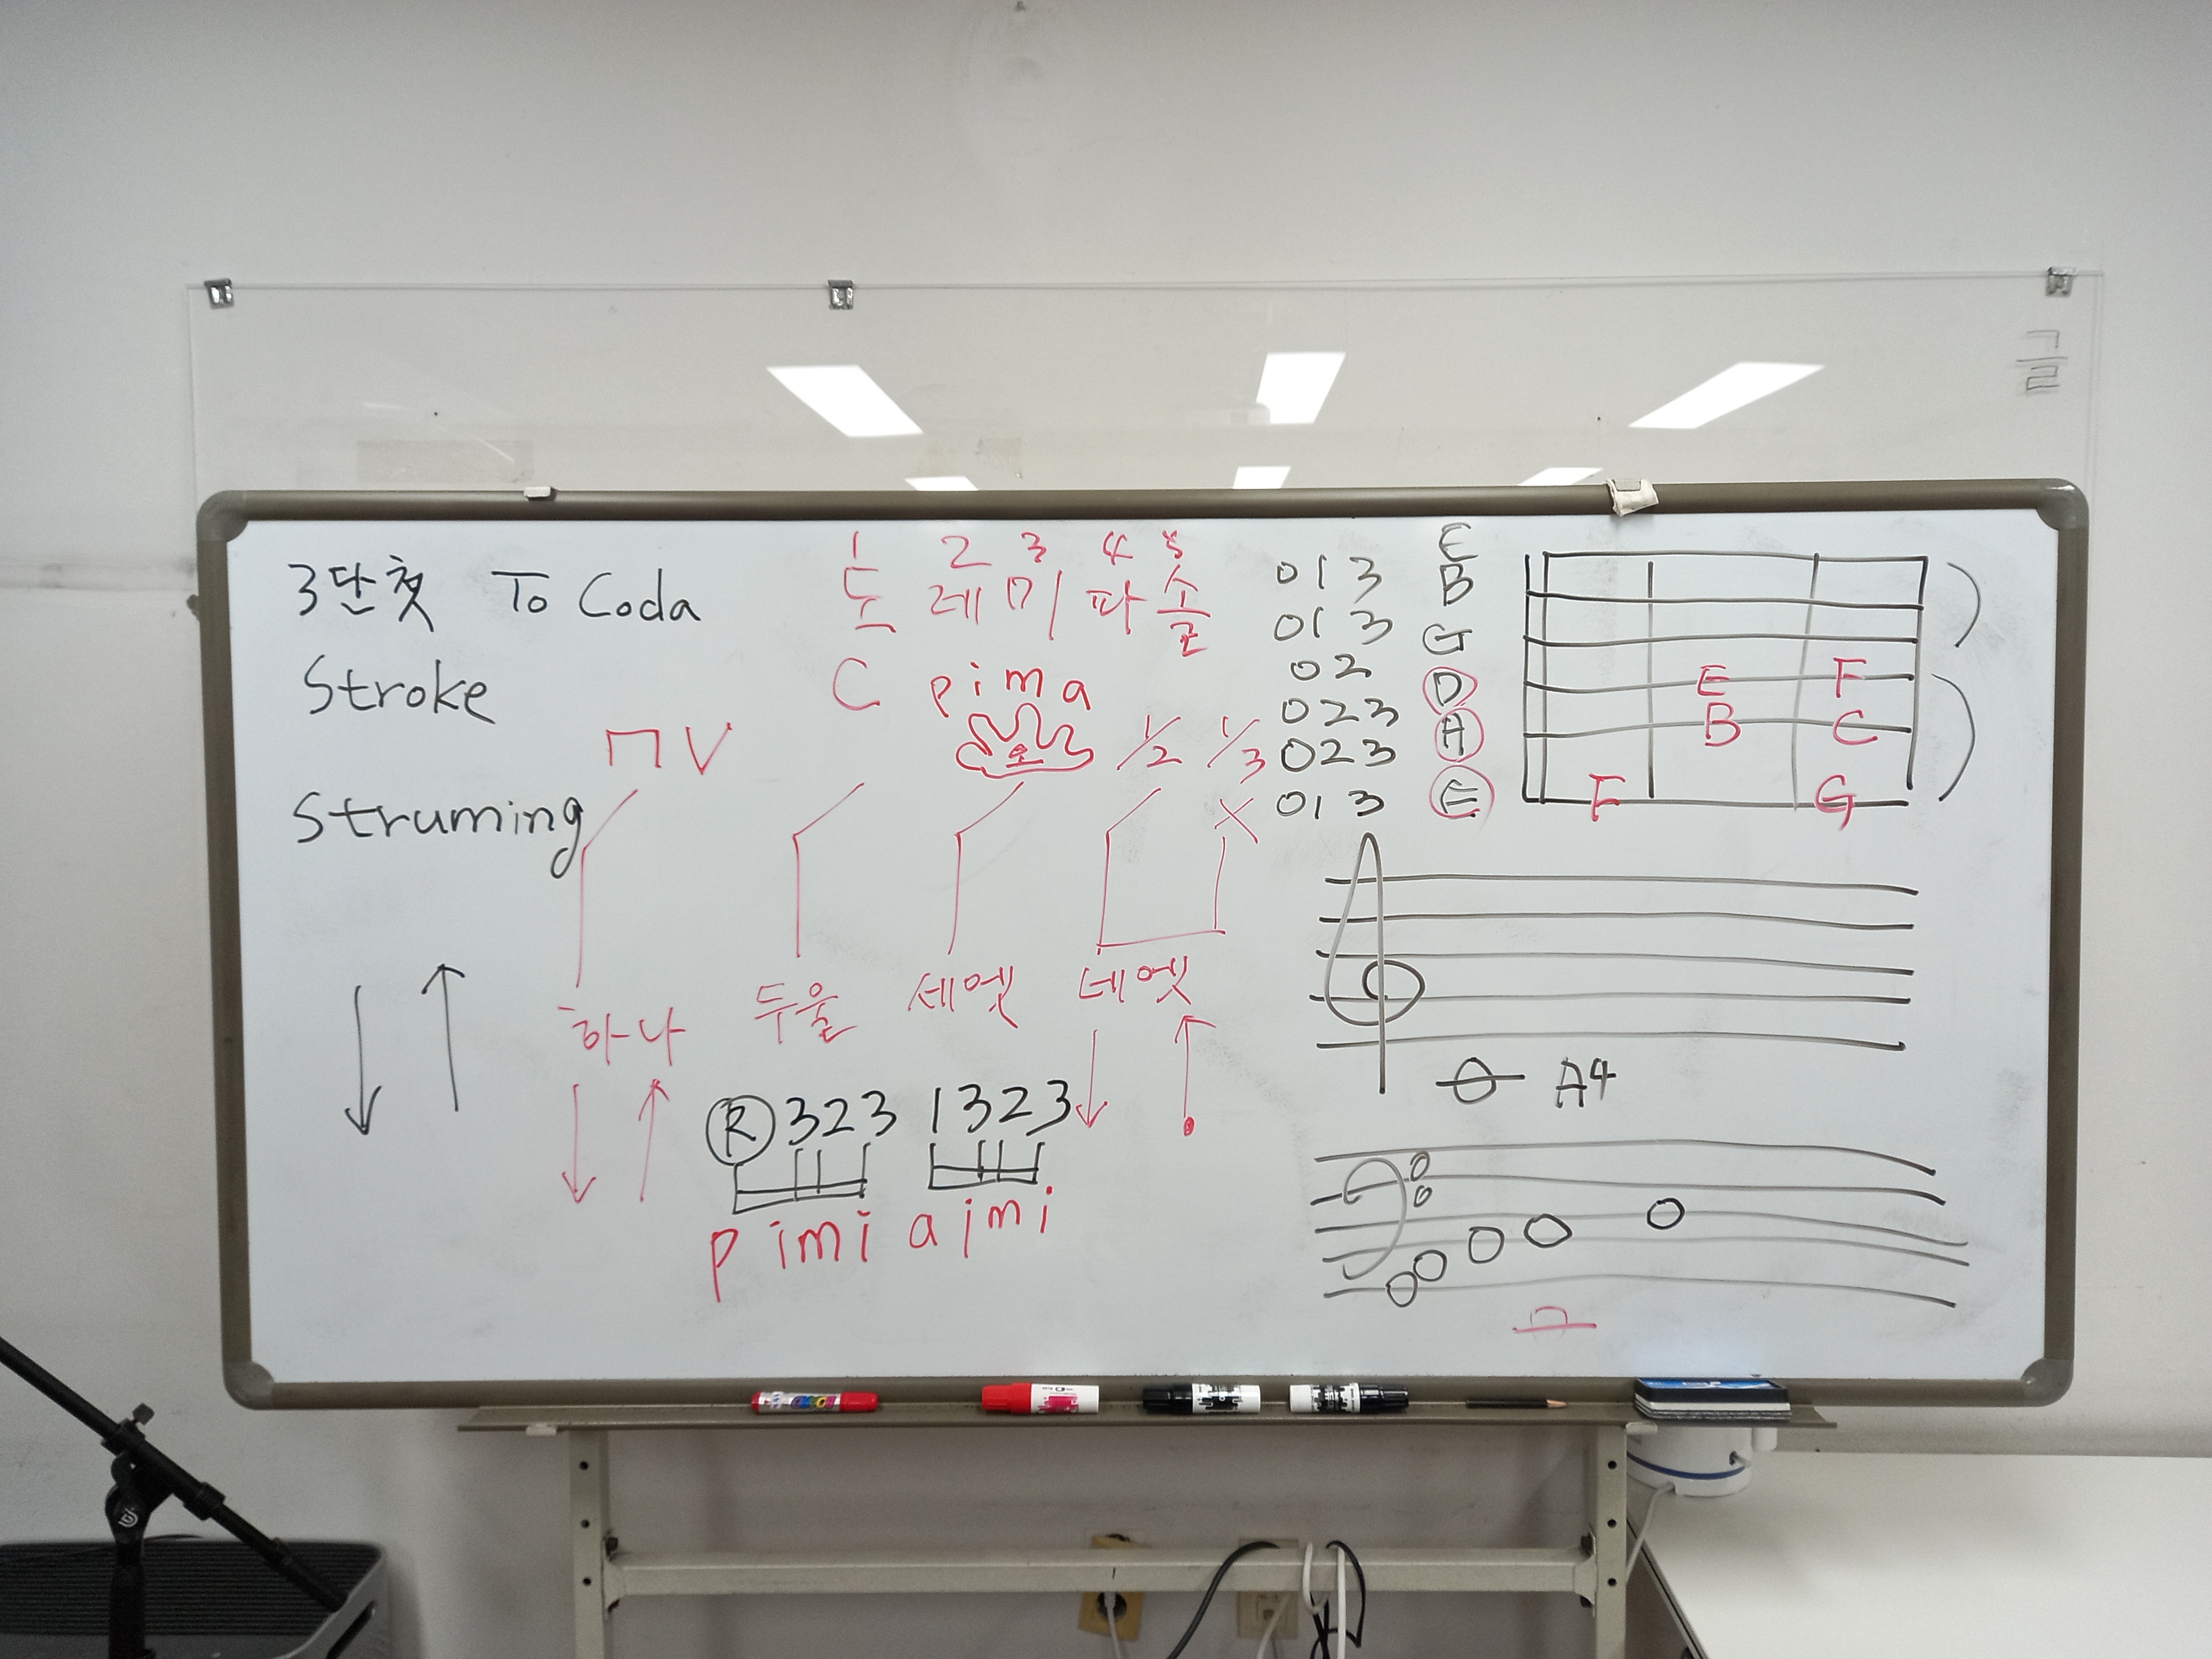 3단 첫 To Coda
Stroke
Struming
1 2 3 4 5
도 레 미 파 솔
C p i m a
초
1/2 1/3
하나 두울 세엣 네엣
R 323 1323
p i m i a i m i
E
013 B
013 G
02 D
023 A
023 E
013
E F
B C
F G
A4